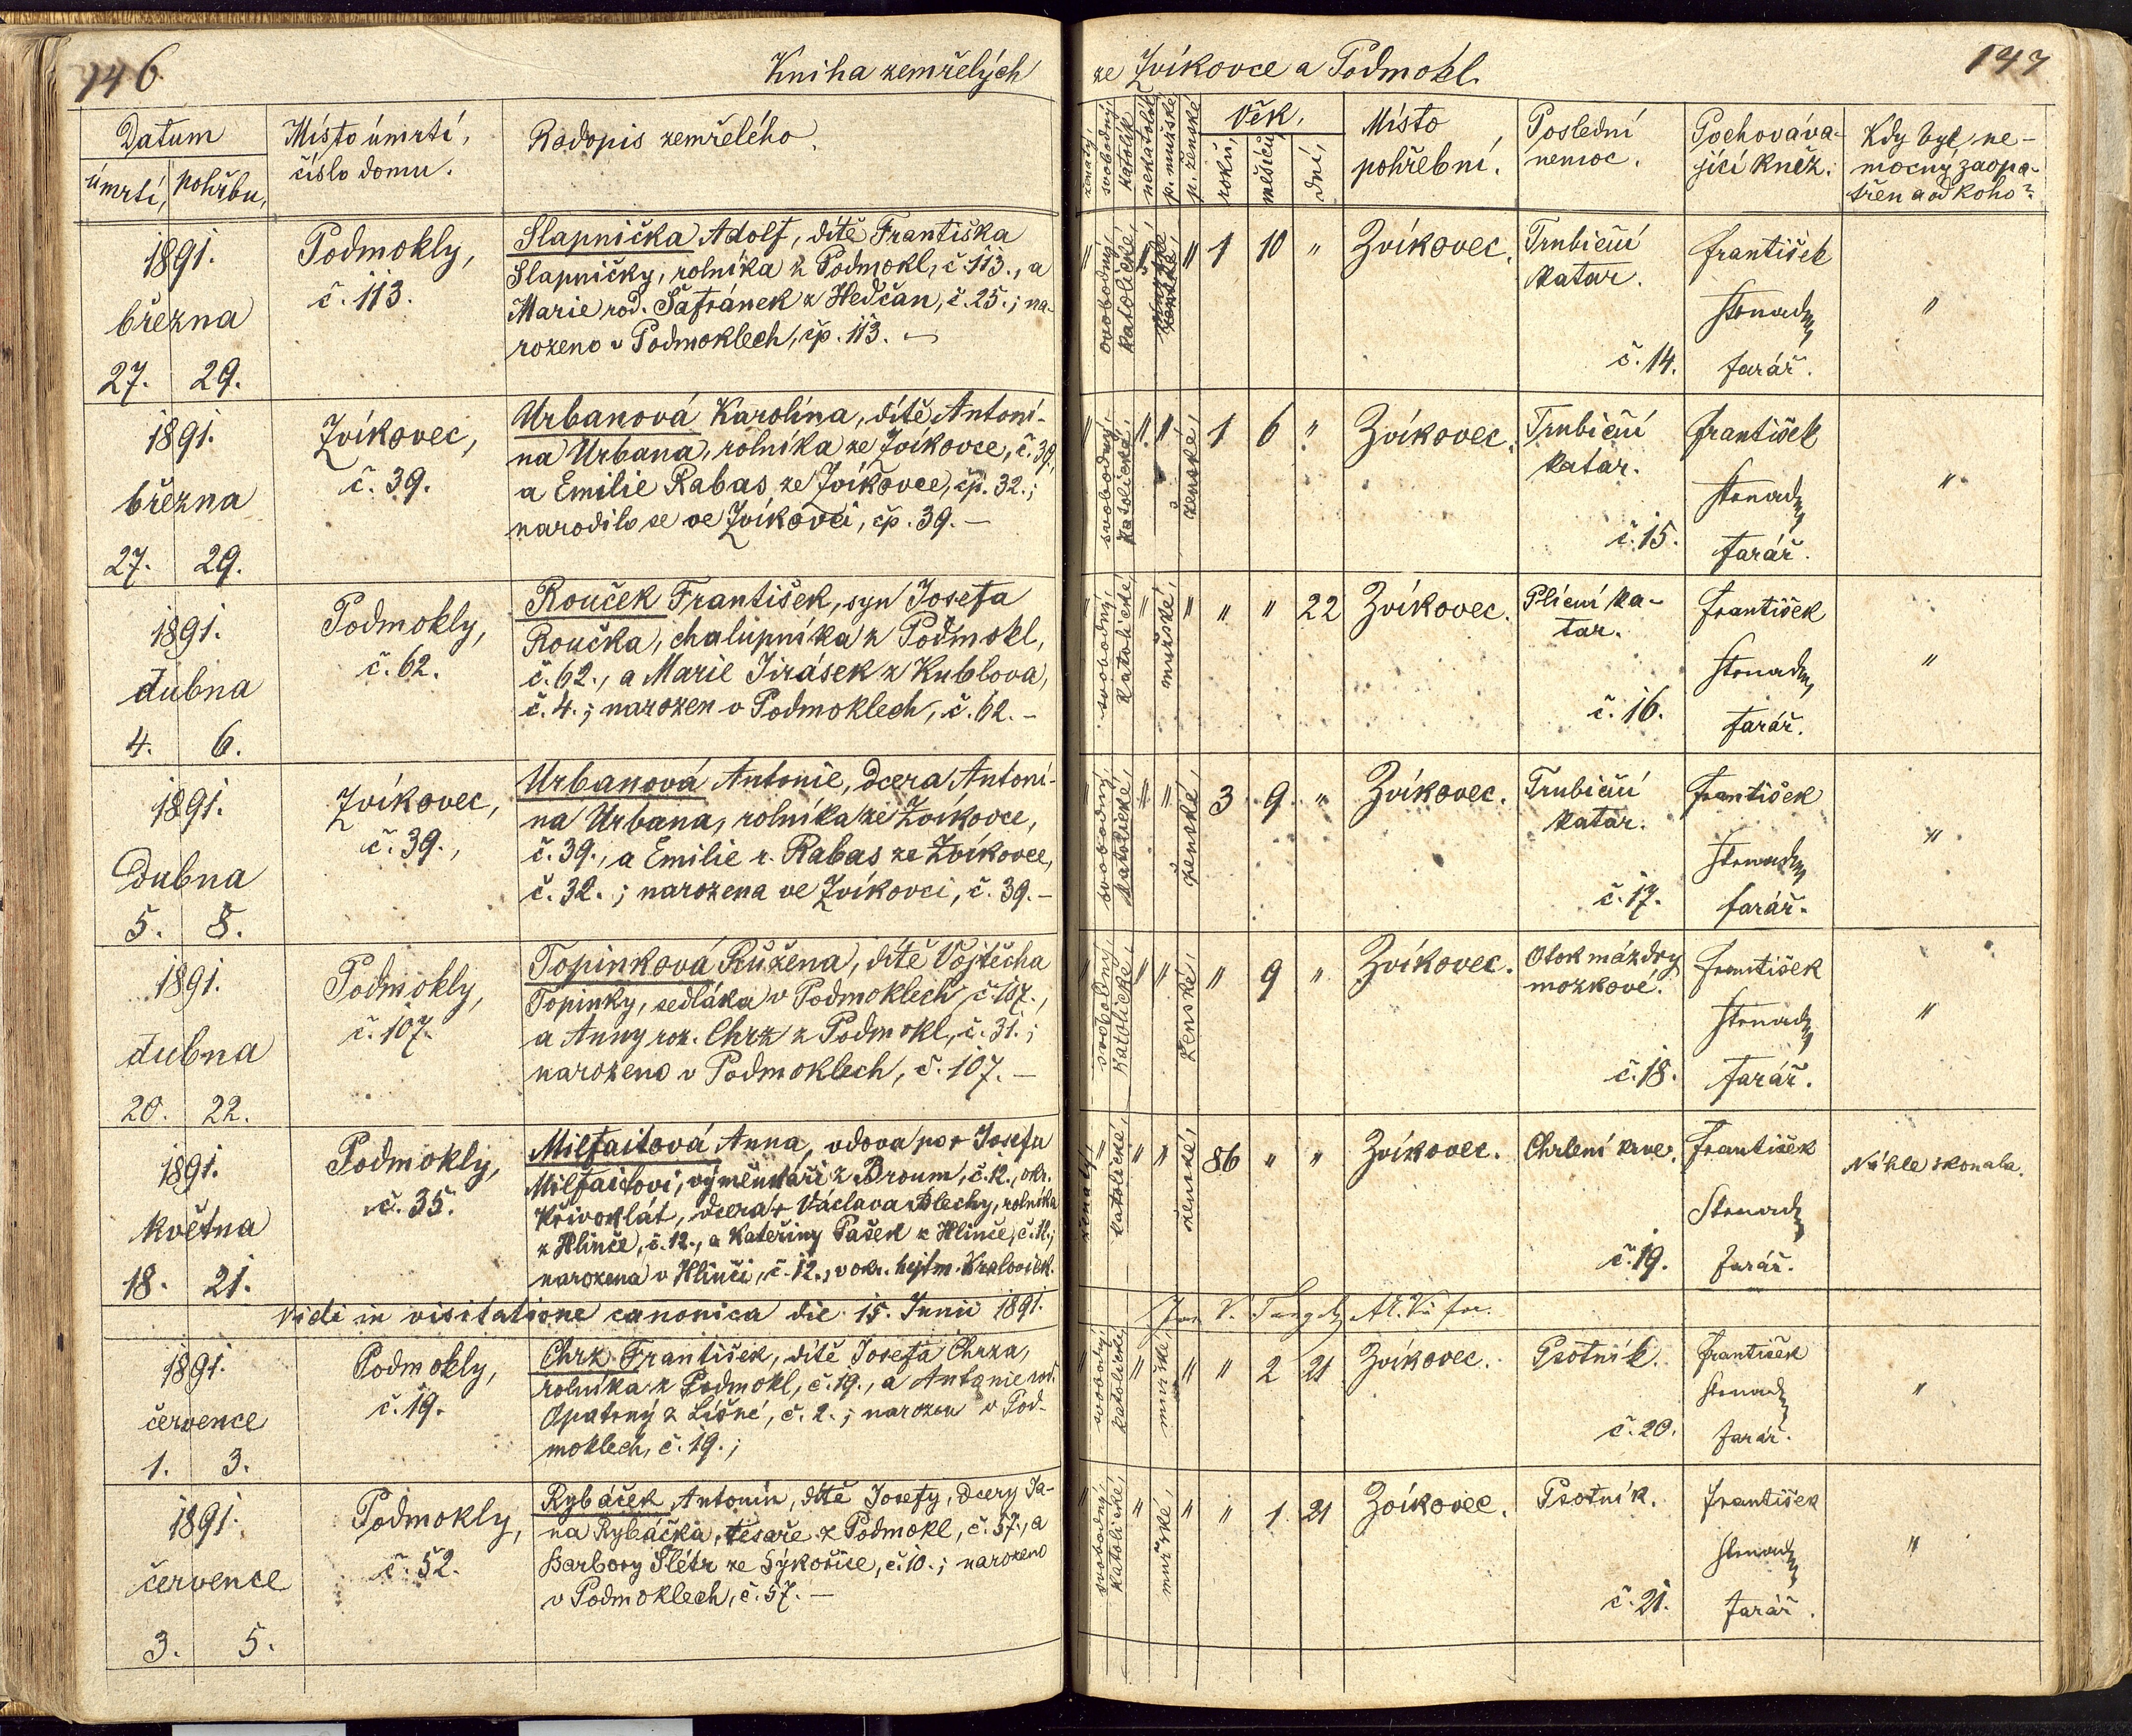 146
Kniha zemřelých
Datum
úmrtí, pohřbu,
Místo úmrtí,
číslo domu.
Rodopis zemřelého.
1891.
března
27. 29.
Podmokly,
č. 113.
Slapnička Adolf, dítě Františka
Slapničky, rolníka z Podmokl, č. 113., a
Marie rod. Šafránek z Hedčan, č. 25.; na-
rozeno v Podmoklech, čp. 113. –
1891.
března
27. 29.
Zvíkovec,
č. 39.
Urbanová Karolína, dítě Antoní-
na Urbana, rolníka ze Zvíkovce, č. 39,
a Emilie Rabas ze Zvíkovce, čp. 32.;
narodilo se ve Zvíkovci, čp. 39. –
1891.
dubna
4. 6.
Podmokly,
č. 62.
Rouček František, syn Josefa
Roučka, chalupníka z Podmokl,
č. 62., a Marie Jirásek z Kublova,
č. 4.; narozen v Podmoklech, č. 62. –
1891.
Dubna
5. 8.
Zvíkovec,
č. 39.,
Urbanová Antonie, dcera Antoní-
na Urbana, rolníka ze Zvíkovce,
č. 39., a Emilie r. Rabas ze Zvíkovce,
č. 32.; narozena ve Zvíkovci, č. 39. –
1891.
dubna
20. 22.
Podmokly,
č. 107.
Topinková Růžena, dítě Vojtěcha
Topinky, sedláka v Podmoklech, č. 107.,
a Anny roz. Chrz z Podmokl, č. 31.;
narozeno v Podmoklech, č. 107. –
1891.
května
18. 21.
Podmokly,
č. 35.
Milfaitová Anna, vdova po + Josefu
Milfaitovi, výměnkáři z Broum, č. 12., okr.
Křivoklát, dcera + Václava Blechy, rolníka
z Hlinče, č. 12., a Kateřiny Pašek z Hlinče, č. 12.;
narozena v Hlinči, č. 12., v okr. hejtm. Kralovick.
Vidi in visitatione canonica die 15. Junii 1891.
1891.
července
1. 3.
Podmokly,
č. 19.
Chrz František, dítě Josefa Chrza,
rolníka z Podmokl, č. 19., a Antonie rod.
Opatrný z Líšné, č. 2.; narozen v Pod-
moklech, č. 19.;
1891.
července
3. 5.
Podmokly,
č. 52.
Rybáček Antonín, dítě Josefy, dcery Ja-
na Rybáčka, tesaře z Podmokl, č. 57., a
Barbory Šlétr ze Sýkořice, č. 10.; narozeno
v Podmoklech, č. 57. –
ze Zvíkovce a Podmokl.
147
ženatý,
svobodný,
katolík
nekatolík
p. mužské
p. ženské
Věk,
roků,
měsíců,
dní,
Místo
pohřební.
Poslední
nemoc.
Pochováva-
jící kněz.
Kdy byl ne-
mocný zaopa-
třen a od koho?
" svobodný, katolické, " " 1 10 " Zvíkovec. Trubiční
katar.
č. 14.
František
farář.
"
" svobodný, katolické, " " ženské, 1 6 " Zvíkovec. Trubiční
katar.
č. 15.
František
farář.
"
" svobodný, katolické, " mužské, " " " 22 Zvíkovec. Plícní ka-
tar.
č. 16.
František
farář.
"
" svobodný, katolické, " " ženské, 3 9 " Zvíkovec. Trubiční
katar.
č. 17.
František
farář.
"
" svobodný, katolické, " " ženské, " 9 " Zvíkovec. Otok mázdry
mozkové.
č. 18.
František
farář.
"
ženatý, " katolické, " " ženské, 86 " " Zvíkovec. Chrlení krve.
č. 19.
František
farář.
Náhle skonala.
" svobodný, katolické, " mužské, " " 2 21 Zvíkovec. Psotník.
č. 20.
František
farář.
"
" svobodný, katolické, " mužské, " " 1 21 Zvíkovec. Psotník.
č. 21.
František
farář.
"